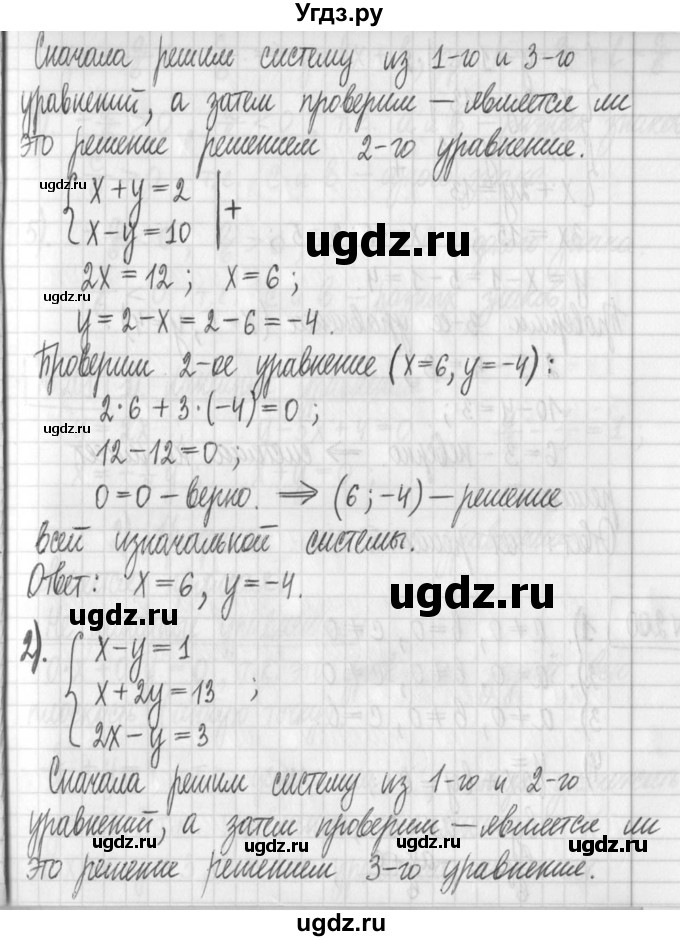 Угдз.ру
Сначала решим систему из 1-го и 3-го
уравнений, а затем проверим — является ли
это решение решением 2-го уравнения.
gdz.ru
x + y = 2
x − y = 10 | +
ugdz.ru
gdz.ru
2x = 12 ; x = 6 ;
y = 2 − x = 2 − 6 = −4 .
Проверим 2-ое уравнение (x = 6, y = −4) :
2 · 6 + 3 · (−4) = 0 ;
gdz.ru
12 − 12 = 0 ;
0 = 0 – верно. ⟹ (6 ; −4) – решение
всей изначальной системы.
Ответ: x = 6 , y = −4.
ugdz.ru
ugdz.ru
2). x − y = 1
x + 2y = 13 ;
2x − y = 3
Сначала решим систему из 1-го и 2-го
уравнений, а затем проверим — является ли
ugdz.ru ugdz.ru ugdz.ru
это решение решением 3-го уравнения.
ugdz.ru